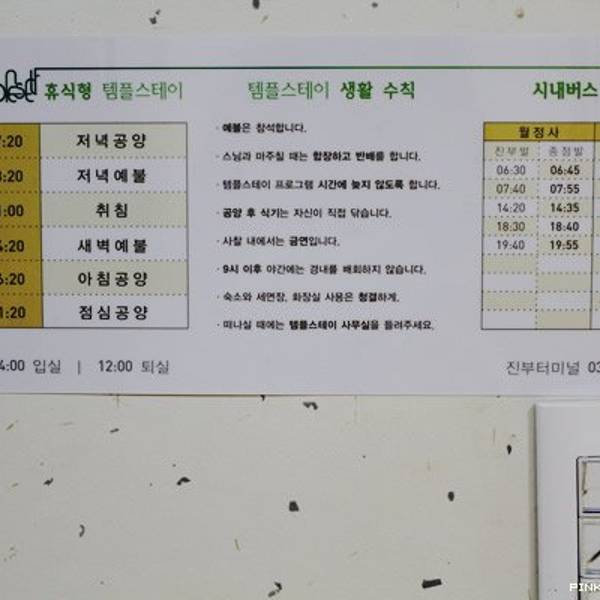 휴식형 템플스테이
:20 저녁공양
:20 저녁예불
:00 취침
:20 새벽예불
:20 아침공양
:20 점심공양
:00 입실 | 12:00 퇴실
템플스테이 생활 수칙
· 예불은 참석합니다.
· 스님과 마주칠 때는 합장하고 반배를 합니다.
· 템플스테이 프로그램 시간에 늦지 않도록 합니다.
· 공양 후 식기는 자신이 직접 닦습니다.
· 사찰 내에서는 금연입니다.
· 9시 이후 야간에는 경내를 배회하지 않습니다.
· 숙소와 세면장, 화장실 사용은 청결하게.
· 떠나실 때에는 템플스테이 사무실을 들려주세요.
시내버스
월정사
진부발 종점발
06:30 06:45
07:40 07:55
14:20 14:35
18:30 18:40
19:40 19:55
진부터미널 03
PINK